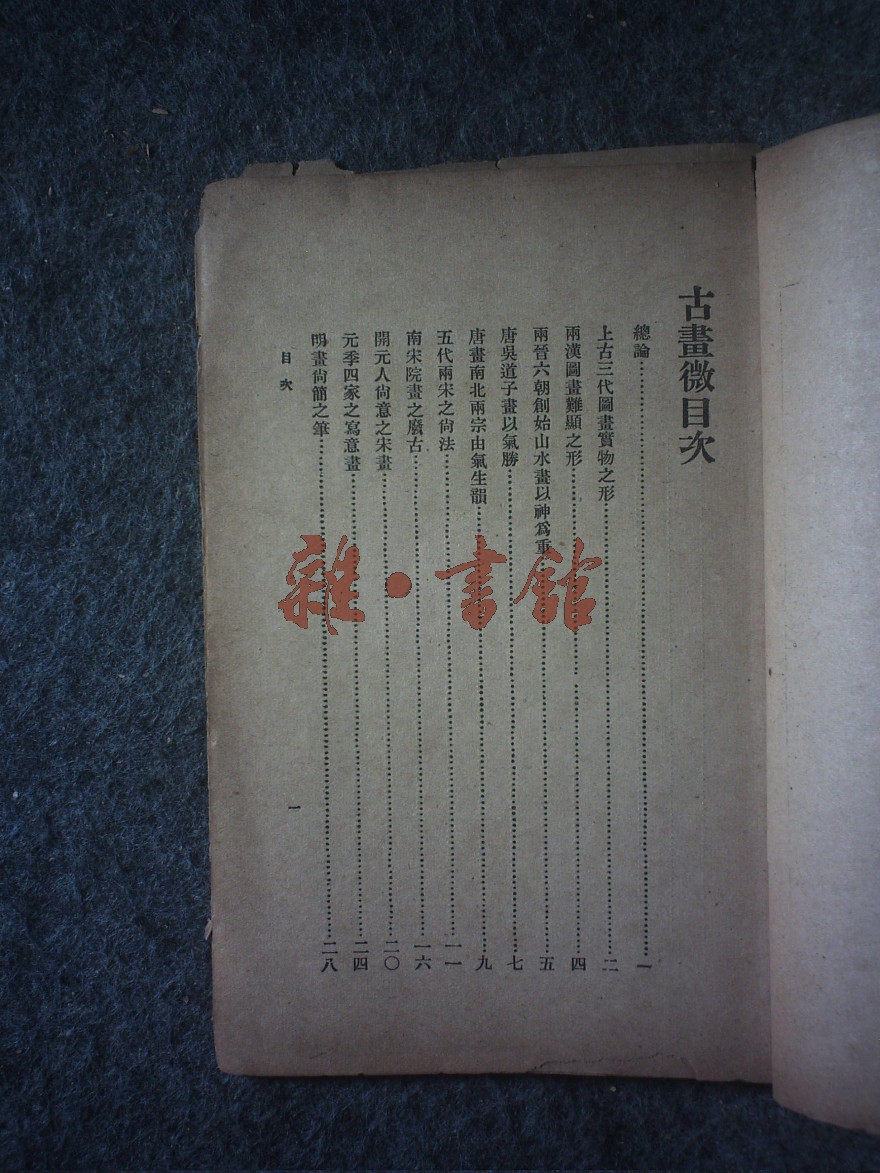 古畫微目次
總論……一
上古三代圖畫實物之形……二
兩漢圖畫難顯之形……四
兩晉六朝創始山水畫以神爲重……五
唐吳道子畫以氣勝……七
唐畫南北兩宗由氣生韻……九
五代兩宋之尙法……一一
南宋院畫之廢古……一六
開元人尙意之宋畫……二〇
元季四家之寫意畫……二四
明畫尙簡之筆……二八
目次
一
雜·書館